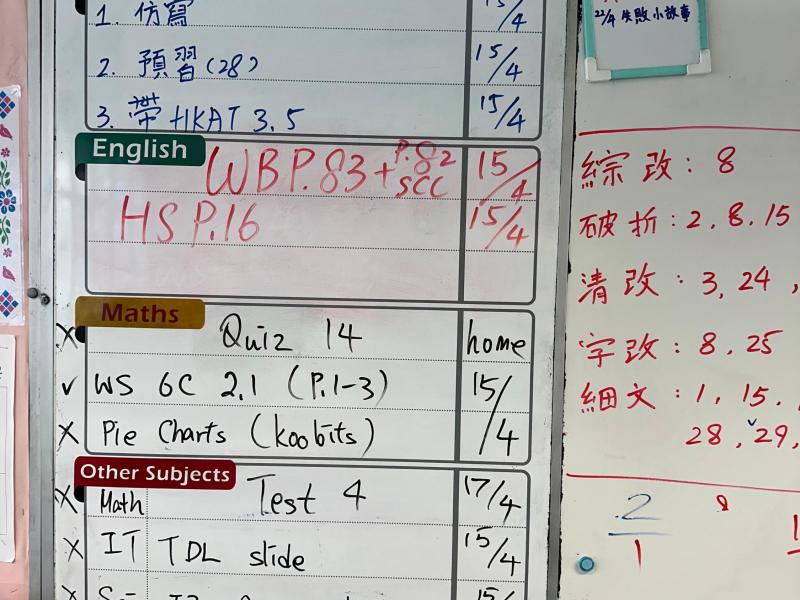 1. 仿寫 15/4
2. 預習(28) 15/4
3. 帶 HKAT 3.5 15/4
English
WB P.83 + P.82 SCC 15/4
HS P.16 15/4
Maths
X Quiz 14 home
✓ WS 6C 2.1 (P.1-3) 15/4
X Pie Charts (koobits)
Other Subjects
X Math Test 4 17/4
X IT TDL slide 15/4
22/4 失敗小故事
綜改: 8
破折: 2, 8, 15
清改: 3, 24,
字改: 8, 25
細文: 1, 15,
28, 29,
2/1
8